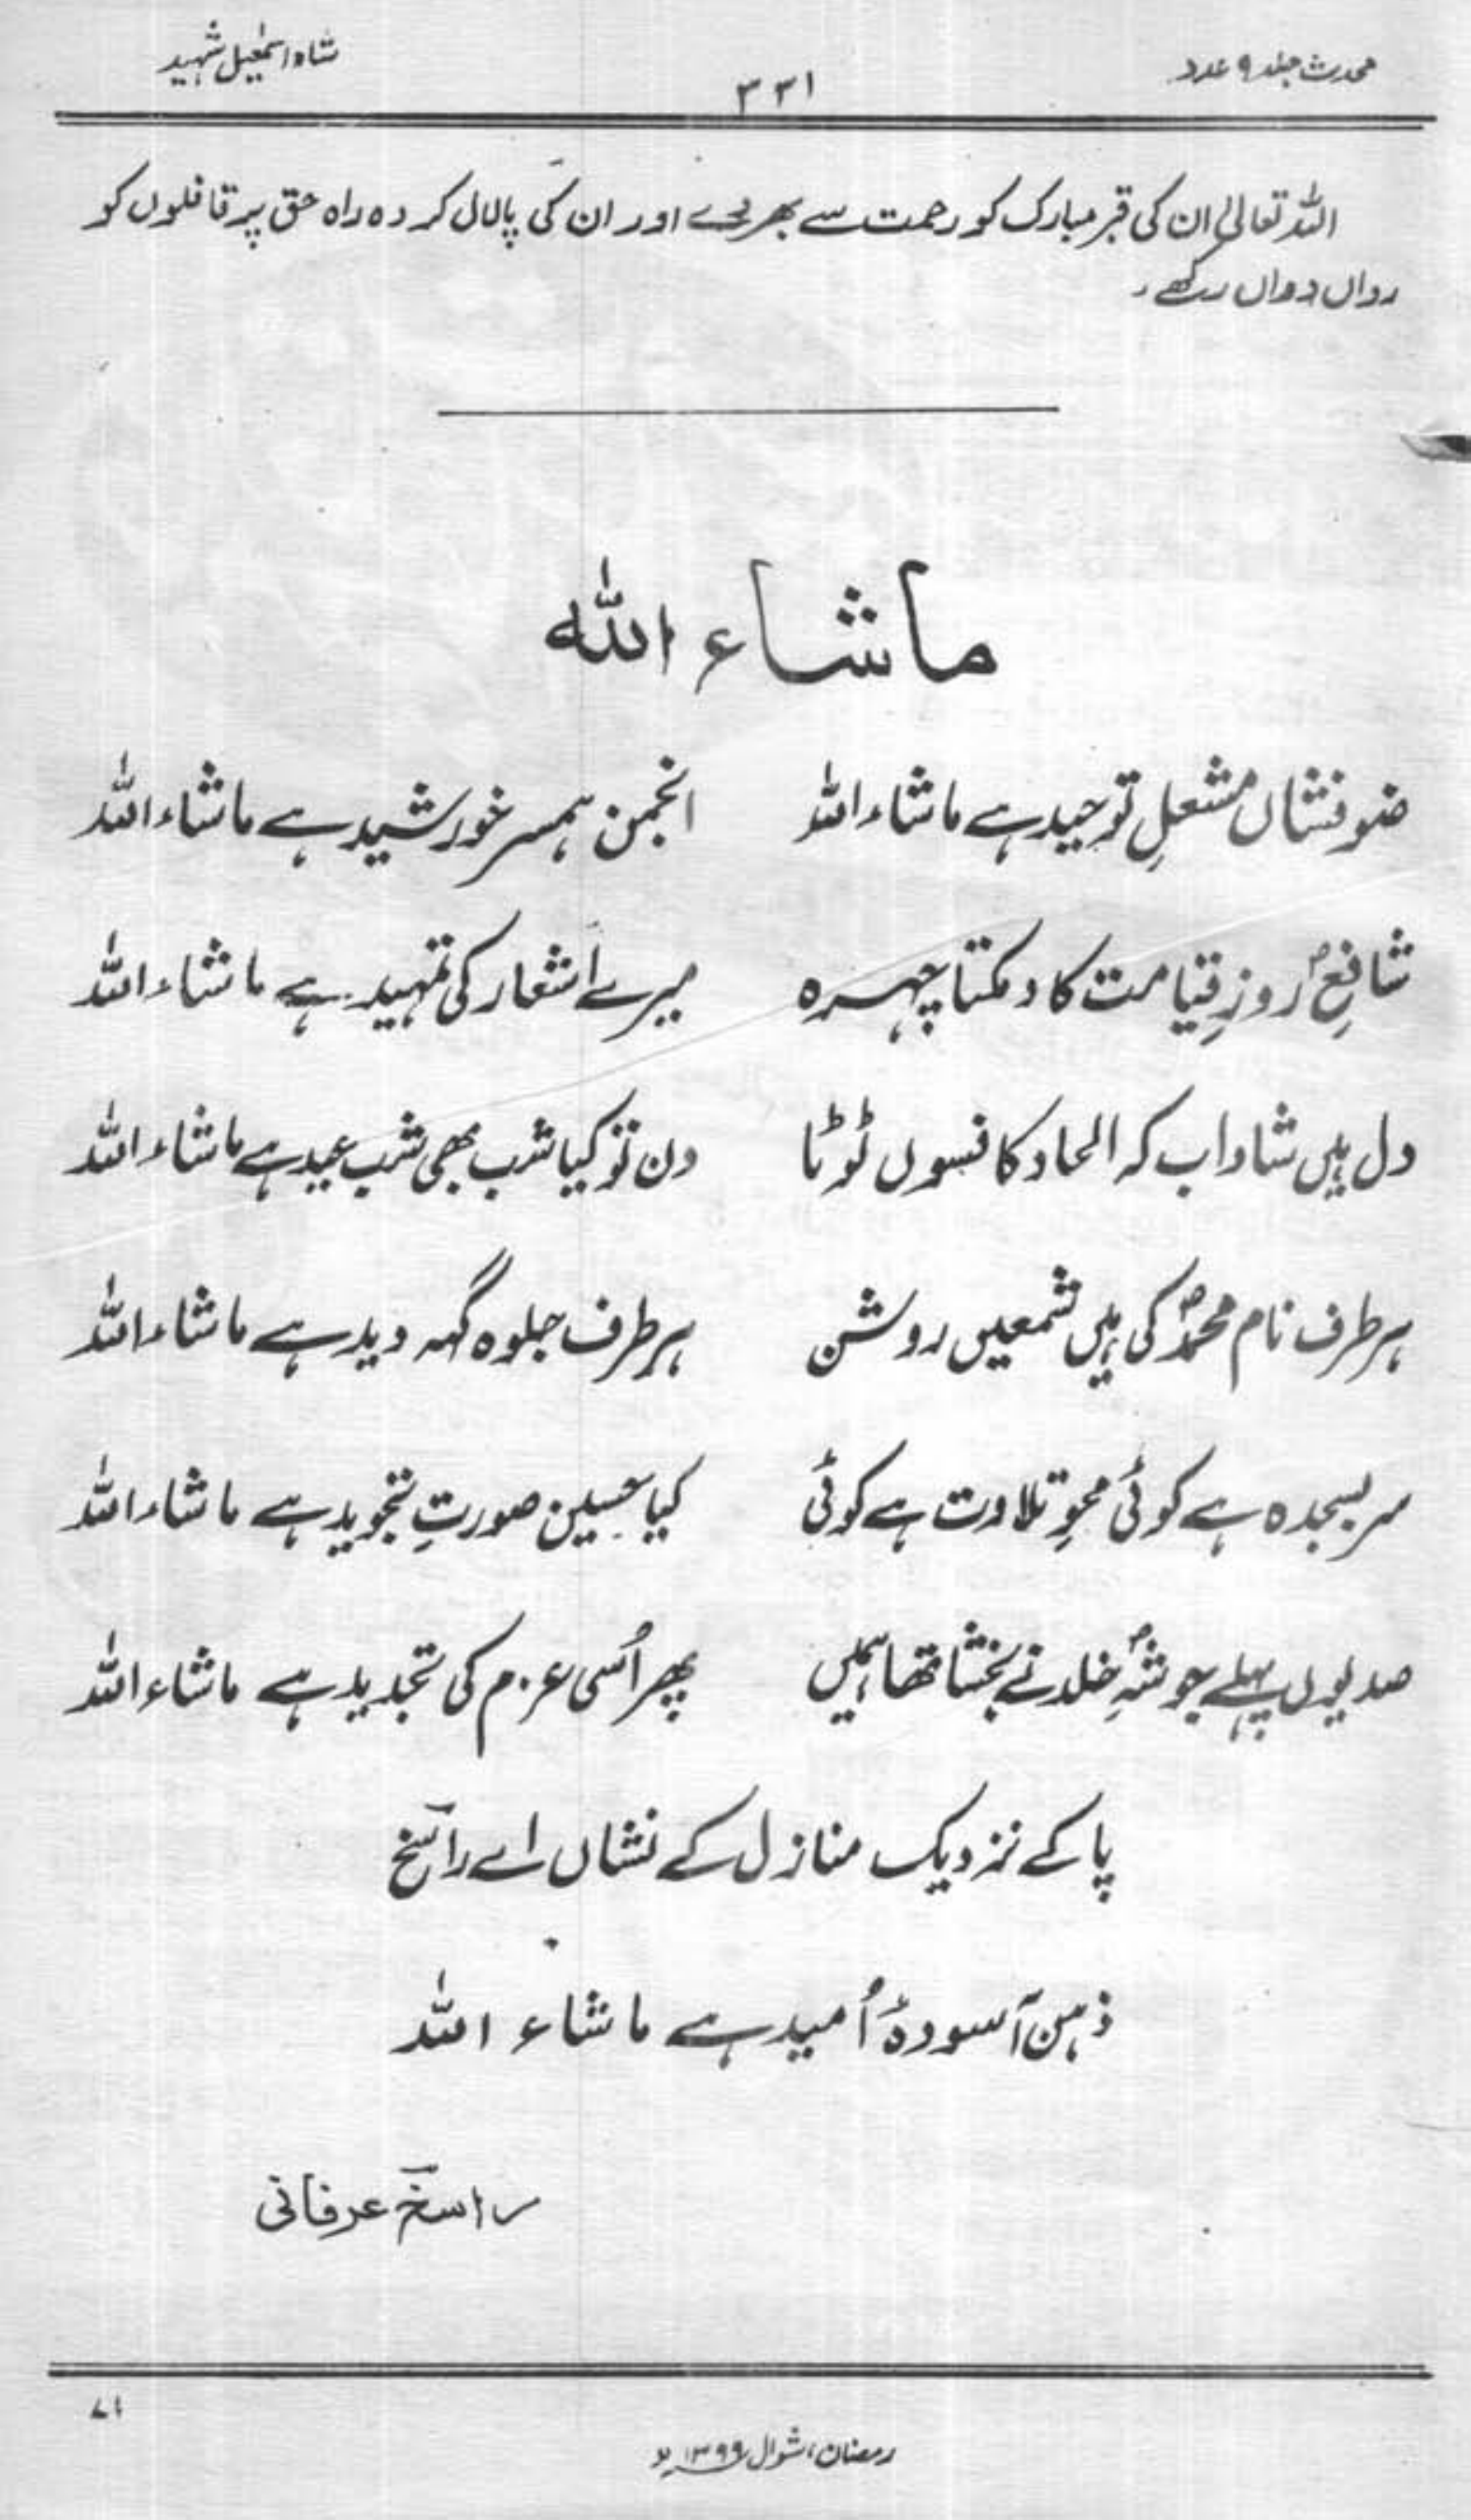 محدث جلد ۹ عدد
شاہ اسمٰعیل شہید
۳۳۱
اللہ تعالیٰ ان کی قبر مبارک کو رحمت سے بھر دے اور ان کی پامال کردہ راہ حق پر قافلوں کو
رواں دواں رکھے۔
ماشاء اللہ
ضوفشاں مشعلِ توحید ہے ماشاء اللہ انجمن ہمسر خورشید ہے ماشاء اللہ
شافعِؐ روزِ قیامت کا دمکتا چہرہ میرے اشعار کی تمہید ہے ماشاء اللہ
دل ہیں شاداب کہ الحاد کا فسوں ٹوٹا دن تو کیا شب بھی شب عید ہے ماشاء اللہ
ہر طرف نام محمدؐ کی ہیں شمعیں روشن ہر طرف جلوہ گہہ دید ہے ماشاء اللہ
سر بسجدہ ہے کوئی محوِ تلاوت ہے کوئی کیا حسین صورتِ تجوید ہے ماشاء اللہ
صدیوں پہلے جو شہِؐ خلد نے بخشا تھا ہمیں پھر اُسی عزم کی تجدید ہے ماشاء اللہ
پا کے نزدیک منازل کے نشاں اے راسخؔ
ذہن آسودۂ اُمید ہے ماشاء اللہ
راسخؔ عرفانی
۷۱
رمضان، شوال ۱۳۹۹ھ